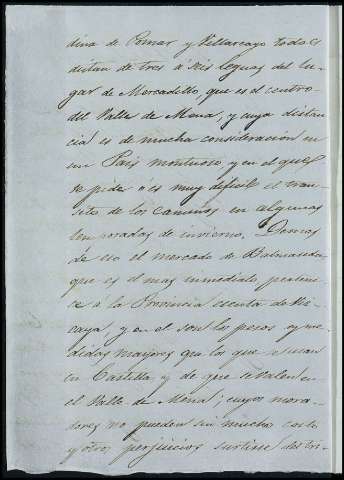 dina de Pomar y Villarcayo todos
distan de tres á seis leguas del lu-
gar de Mercadillo, que es el centro
del Valle de Mena, y cuya distan-
cia es de mucha consideracion en
un Pais montuoso, y en el qual
se pide ó es muy dificil el tran-
sito de los caminos en algunas
temporadas de invierno. Demas
de eso el mercado de Balmaseda,
que es el mas inmediato pertene-
ce á la Provincia de Viz-
caya, y en el son los pesos y me-
didas mayores que los que se usan
en Castilla y de que se valen en
el Valle de Mena; cuyos mora-
dores no pueden sin mucho costo
y otros perjuicios surtirse del tri-